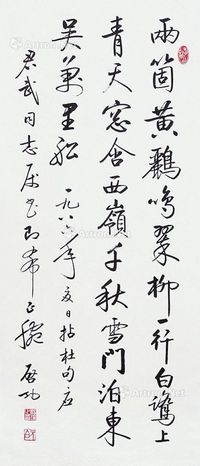 兩箇黃鸝鳴翠柳一行白鷺上
青天窓含西嶺千秋雪門泊東
吴萬里船 一九八六年夏日拈杜句应
君武同志属书即希正腕 启功